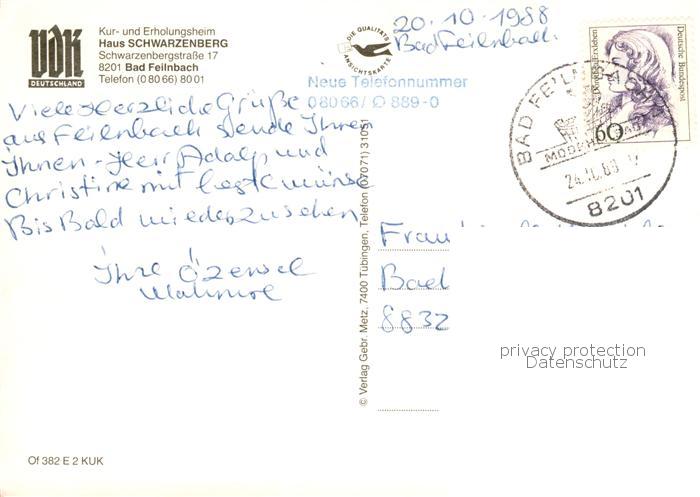 VdK
DEUTSCHLAND
Kur- und Erholungsheim
Haus SCHWARZENBERG
Schwarzenbergstraße 17
8201 Bad Feilnbach
Telefon (0 80 66) 80 01
DIE QUALITÄTS
ANSICHTSKARTE
20.10.1988
Bad Feilnbach.
Neue Telefonnummer
08066/ 889-0
Deutsche Bundespost
60
BAD FEILNBACH
24.10.88
8201
Viele Herzliche Grüße
aus Feilnbach sende Ihnen
Ihnen - Herr Adolf und
Christine mit beste
Bis Bald wiederzusehen
Ihre
© Verlag Gebr. Metz, 7400 Tübingen, Telefon (07071) 31051
Frau
Bad
8832
privacy protection
Datenschutz
Of 382 E 2 KUK